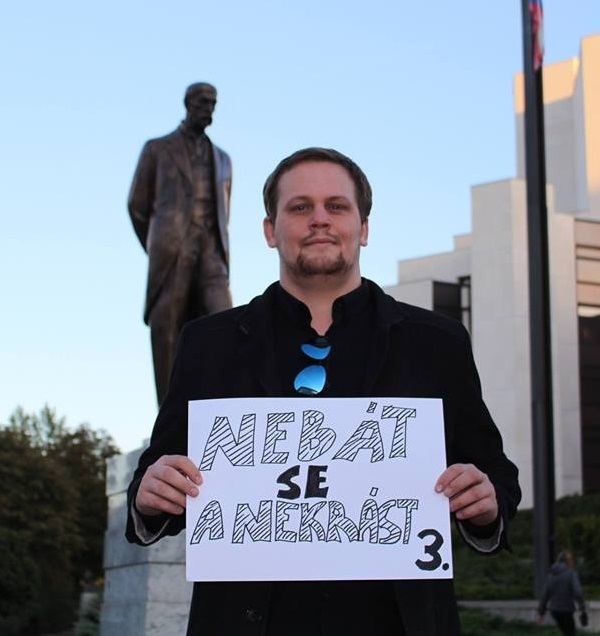 NEBÁT
SE
A NEKRÁST
3.